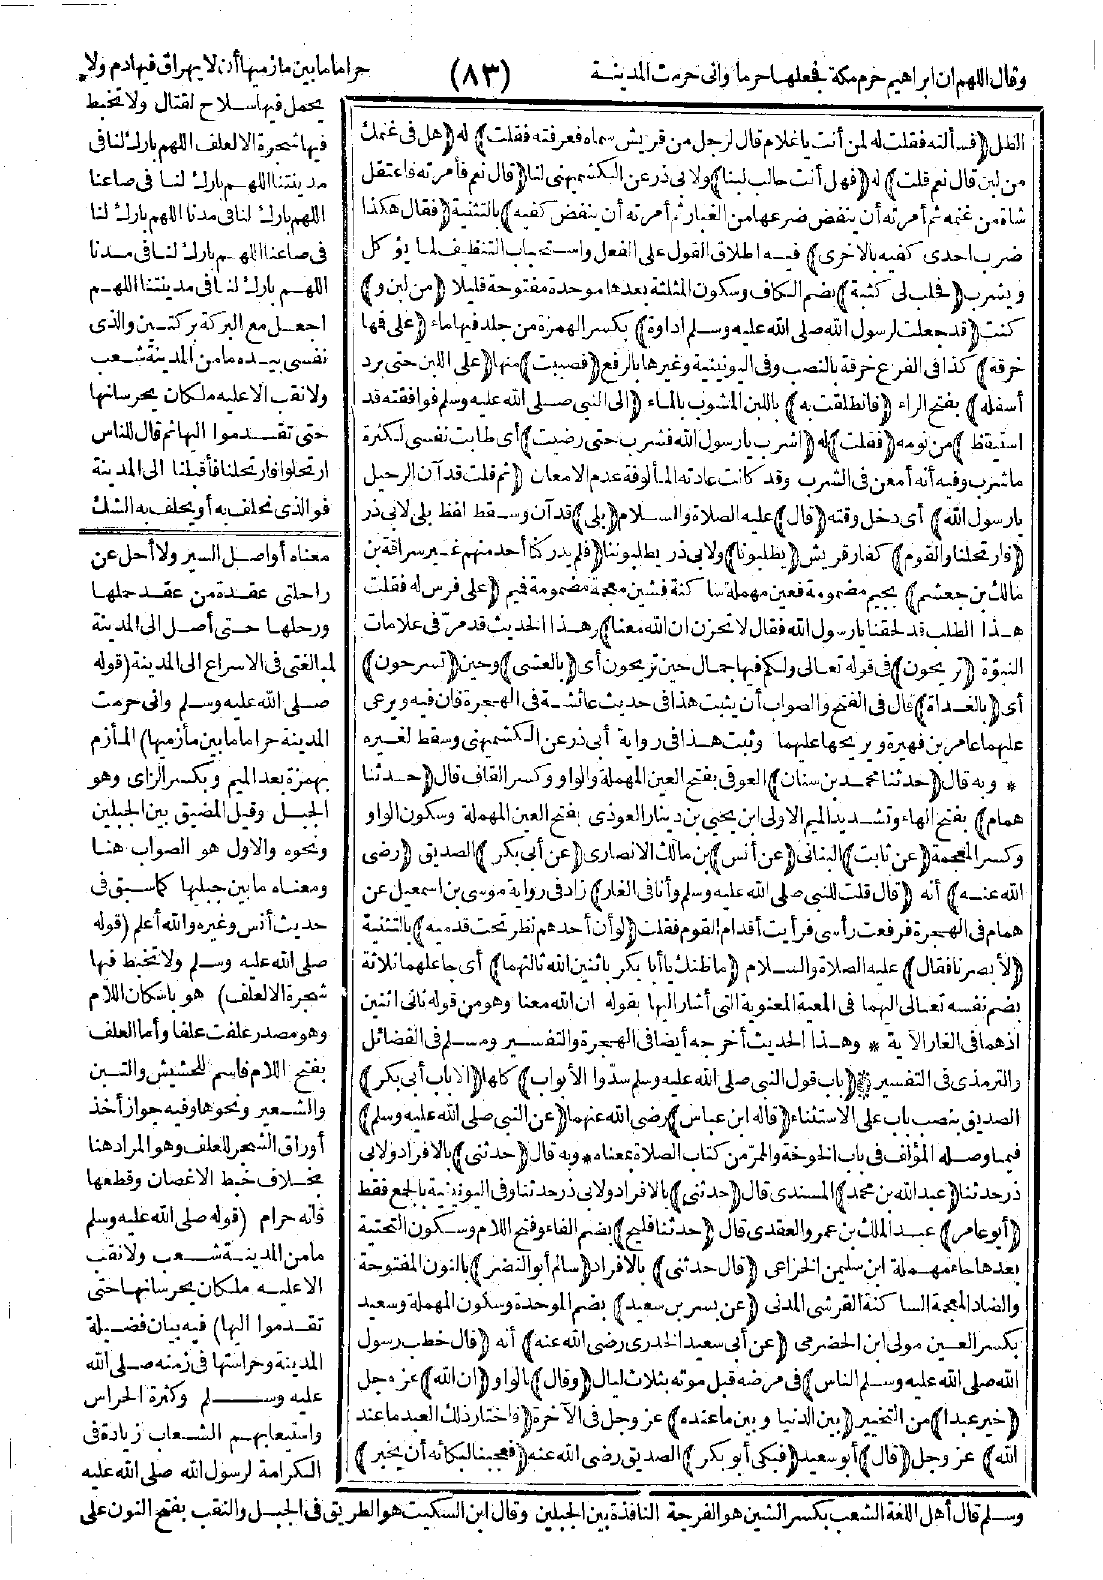 وقال اللهم ان ابراهيم حرم مكة فجعلها حرما وانى حرمت المدينة
(٨٣)
حراما ما بين مازميها أن لا يهراق فيها دم ولا
يحمل فيها سلاح لقتال ولا تخبط
فيها شجرة الا لعلف اللهم بارك لنا فى
مدينتنا اللهم بارك لنا فى صاعنا
اللهم بارك لنا فى مدنا اللهم بارك لنا
فى صاعنا اللهم بارك لنا فى مدنا
اللهم بارك لنا فى مدينتنا اللهم
اجعل مع البركة بركتين والذى
نفسى بيده ما من المدينة شعب
ولا نقب الا عليه ملكان يحرسانها
حتى تقدموا اليها ثم قال للناس
ارتحلوا فارتحلنا فأقبلنا الى المدينة
فوالذى نحلف به أو يحلف به الشك
معناه أواصل السير ولا أحل عن
راحلتى عقدة من عقد حملها
ورحلها حتى أصل الى المدينة
لمبالغتى فى الاسراع الى المدينة (قوله
صلى الله عليه وسلم وانى حرمت
المدينة حراما ما بين مأزميها) المأزم
بهمزة بعد الميم وبكسر الزاى وهو
الجبل وقيل المضيق بين الجبلين
ونحوه والاول هو الصواب هنا
ومعناه ما بين جبليها كما سبق فى
حديث أنس وغيره والله أعلم (قوله
صلى الله عليه وسلم ولا تخبط فيها
شجرة الا لعلف) هو باسكان اللام
وهو مصدر علفت علفا وأما العلف
بفتح اللام فاسم للحشيش والتبن
والشعير ونحوها وفيه جواز أخذ
أوراق الشجر للعلف وهو المراد هنا
بخلاف خبط الاغصان وقطعها
فانه حرام (قوله صلى الله عليه وسلم
ما من المدينة شعب ولا نقب
الا عليه ملكان يحرسانها حتى
تقدموا اليها) فيه بيان فضيلة
المدينة وحراستها فى زمنه صلى الله
عليه وسلم وكثرة الحراس
واستيعابهم الشعاب زيادة فى
الكرامة لرسول الله صلى الله عليه
الظل (فسألته فقلت له لمن أنت يا غلام قال لرجل من قريش سماه فعرفته فقلت) له (هل فى غنمك
من لبن قال نعم قلت) له (فهل أنت حالب لبنا) ولابى ذر عن الكشميهنى لنا (قال نعم فأمرته فاعتقل
شاة من غنمه ثم أمرته أن ينفض ضرعها من الغبار ثم أمرته أن ينفض كفيه) بالتثنية (فقال هكذا
ضرب احدى كفيه بالاخرى) فيه اطلاق القول على الفعل واستحباب التنظيف لما يؤكل
ويشرب (فحلب لى كثبة) بضم الكاف وسكون المثلثة بعدها موحدة مفتوحة قليلا (من لبن و)
كنت (قد جعلت لرسول الله صلى الله عليه وسلم اداوة) بكسر الهمزة من جلد فيها ماء (على فها
خرقة) كذا فى الفرع خرقة بالنصب وفى اليونينية وغيرها بالرفع (فصببت) منها (على اللبن حتى برد
أسفله) بفتح الراء (فانطلقت به) باللبن المشوب بالماء (الى النبى صلى الله عليه وسلم فوافقته قد
استيقظ) من نومه (فقلت) له (اشرب يا رسول الله فشرب حتى رضيت) أى طابت نفسى لكثرة
ما شرب وفيه أنه أمعن فى الشرب وقد كانت عادته المألوفة عدم الامعان (ثم قلت قد آن الرحيل
يا رسول الله) أى دخل وقته (قال) عليه الصلاة والسلام (بلى) قد آن وسقط لفظ بلى لابى ذر
(فارتحلنا والقوم) كفار قريش (يطلبونا) ولابى ذر يطلبوننا (فلم يدركنا أحد منهم غير سراقة بن
مالك بن جعشم) بجيم مضمومة فعين مهملة ساكنة فشين معجمة مضمومة فميم (على فرس له فقلت
هذا الطلب قد لحقنا يا رسول الله فقال لا تحزن ان الله معنا) وهذا الحديث قد مر فى علامات
النبوة (تريحون) فى قوله تعالى ولكم فيها جمال حين تريحون أى (بالعشى) وحين (تسرحون)
أى (بالغداة) قال فى الفتح والصواب أن يثبت هذا فى حديث عائشة فى الهجرة فان فيه ويرعى
عليهما عامر بن فهيرة ويريحها عليهما وثبت هذا فى رواية أبى ذر عن الكشميهنى وسقط لغيره
* وبه قال (حدثنا محمد بن سنان) العوقى بفتح العين المهملة والواو وكسر القاف قال (حدثنا
همام) بفتح الهاء وتشديد الميم الاولى ابن يحيى بن دينار العوذى بفتح العين المهملة وسكون الواو
وكسر المعجمة (عن ثابت) البنانى (عن أنس) بن مالك الانصارى (عن أبى بكر) الصديق (رضى
الله عنه) أنه (قال قلت للنبى صلى الله عليه وسلم وأنا فى الغار) زاد فى رواية موسى بن اسمعيل عن
همام فى الهجرة فرفعت رأسى فرأيت أقدام القوم فقلت (لو أن أحدهم نظر تحت قدميه) بالتثنية
(لأبصرنا فقال) عليه الصلاة والسلام (ما ظنك يا أبا بكر باثنين الله ثالثهما) أى جاعلهما ثلاثة
بضم نفسه تعالى اليهما فى المعية المعنوية التى أشار اليها بقوله ان الله معنا وهو من قوله ثانى اثنين
اذ هما فى الغار الآية * وهذا الحديث أخرجه أيضا فى الهجرة والتفسير ومسلم فى الفضائل
والترمذى فى التفسير * (باب قول النبى صلى الله عليه وسلم سدوا الأبواب) كلها (الا باب أبى بكر)
الصديق بنصب باب على الاستثناء (قاله ابن عباس) رضى الله عنهما (عن النبى صلى الله عليه وسلم)
فيما وصله المؤلف فى باب الخوخة والممر من كتاب الصلاة بمعناه * وبه قال (حدثنى) بالافراد ولابى
ذر حدثنا (عبد الله بن محمد) المسندى قال (حدثنى) بالافراد ولابى ذر حدثنا وفى اليونينية بالجمع فقط
(أبو عامر) عبد الملك بن عمرو العقدى قال (حدثنا فليح) بضم الفاء وفتح اللام وسكون التحتية
بعدها حاء مهملة ابن سليمن الخزاعى (قال حدثنى) بالافراد (سالم أبو النضر) بالنون المفتوحة
والضاد المعجمة الساكنة القرشى المدنى (عن بسر بن سعيد) بضم الموحدة وسكون المهملة وسعيد
بكسر العين مولى ابن الحضرمى (عن أبى سعيد الخدرى رضى الله عنه) أنه (قال خطب رسول
الله صلى الله عليه وسلم الناس) فى مرضه قبل موته بثلاث ليال (وقال) بالواو (ان الله) عز وجل
(خير عبدا) من التخيير (بين الدنيا وبين ما عنده) عز وجل فى الآخرة (فاختار ذلك العبد ما عند
الله) عز وجل (قال) أبو سعيد (فبكى أبو بكر) الصديق رضى الله عنه (فعجبنا لبكائه أن يخبر)
وسلم قال أهل اللغة الشعب بكسر الشين هو الفرجة النافذة بين الجبلين وقال ابن السكيت هو الطريق فى الجبل والنقب بفتح النون على